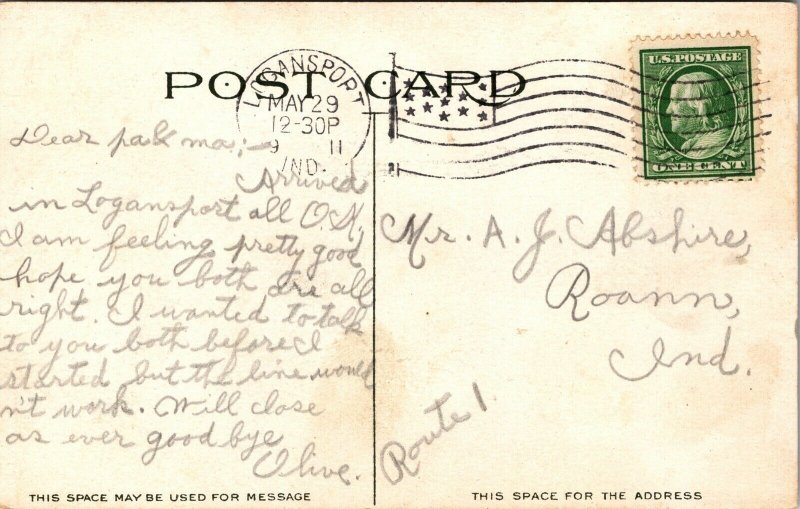 POST CARD
LOGANSPORT
MAY 29
12-30P
9 11
IND.
U.S. POSTAGE
ONE CENT
Dear pa & ma;—
Arrived
in Logansport all O.K.
I am feeling pretty good
hope you both are all
right. I wanted to talk
to you both before I
started but the line would
n't work. Will close
as ever good bye
Olive.
Mr. A. J. Abshire,
Roann,
Ind.
Route 1.
THIS SPACE MAY BE USED FOR MESSAGE
THIS SPACE FOR THE ADDRESS